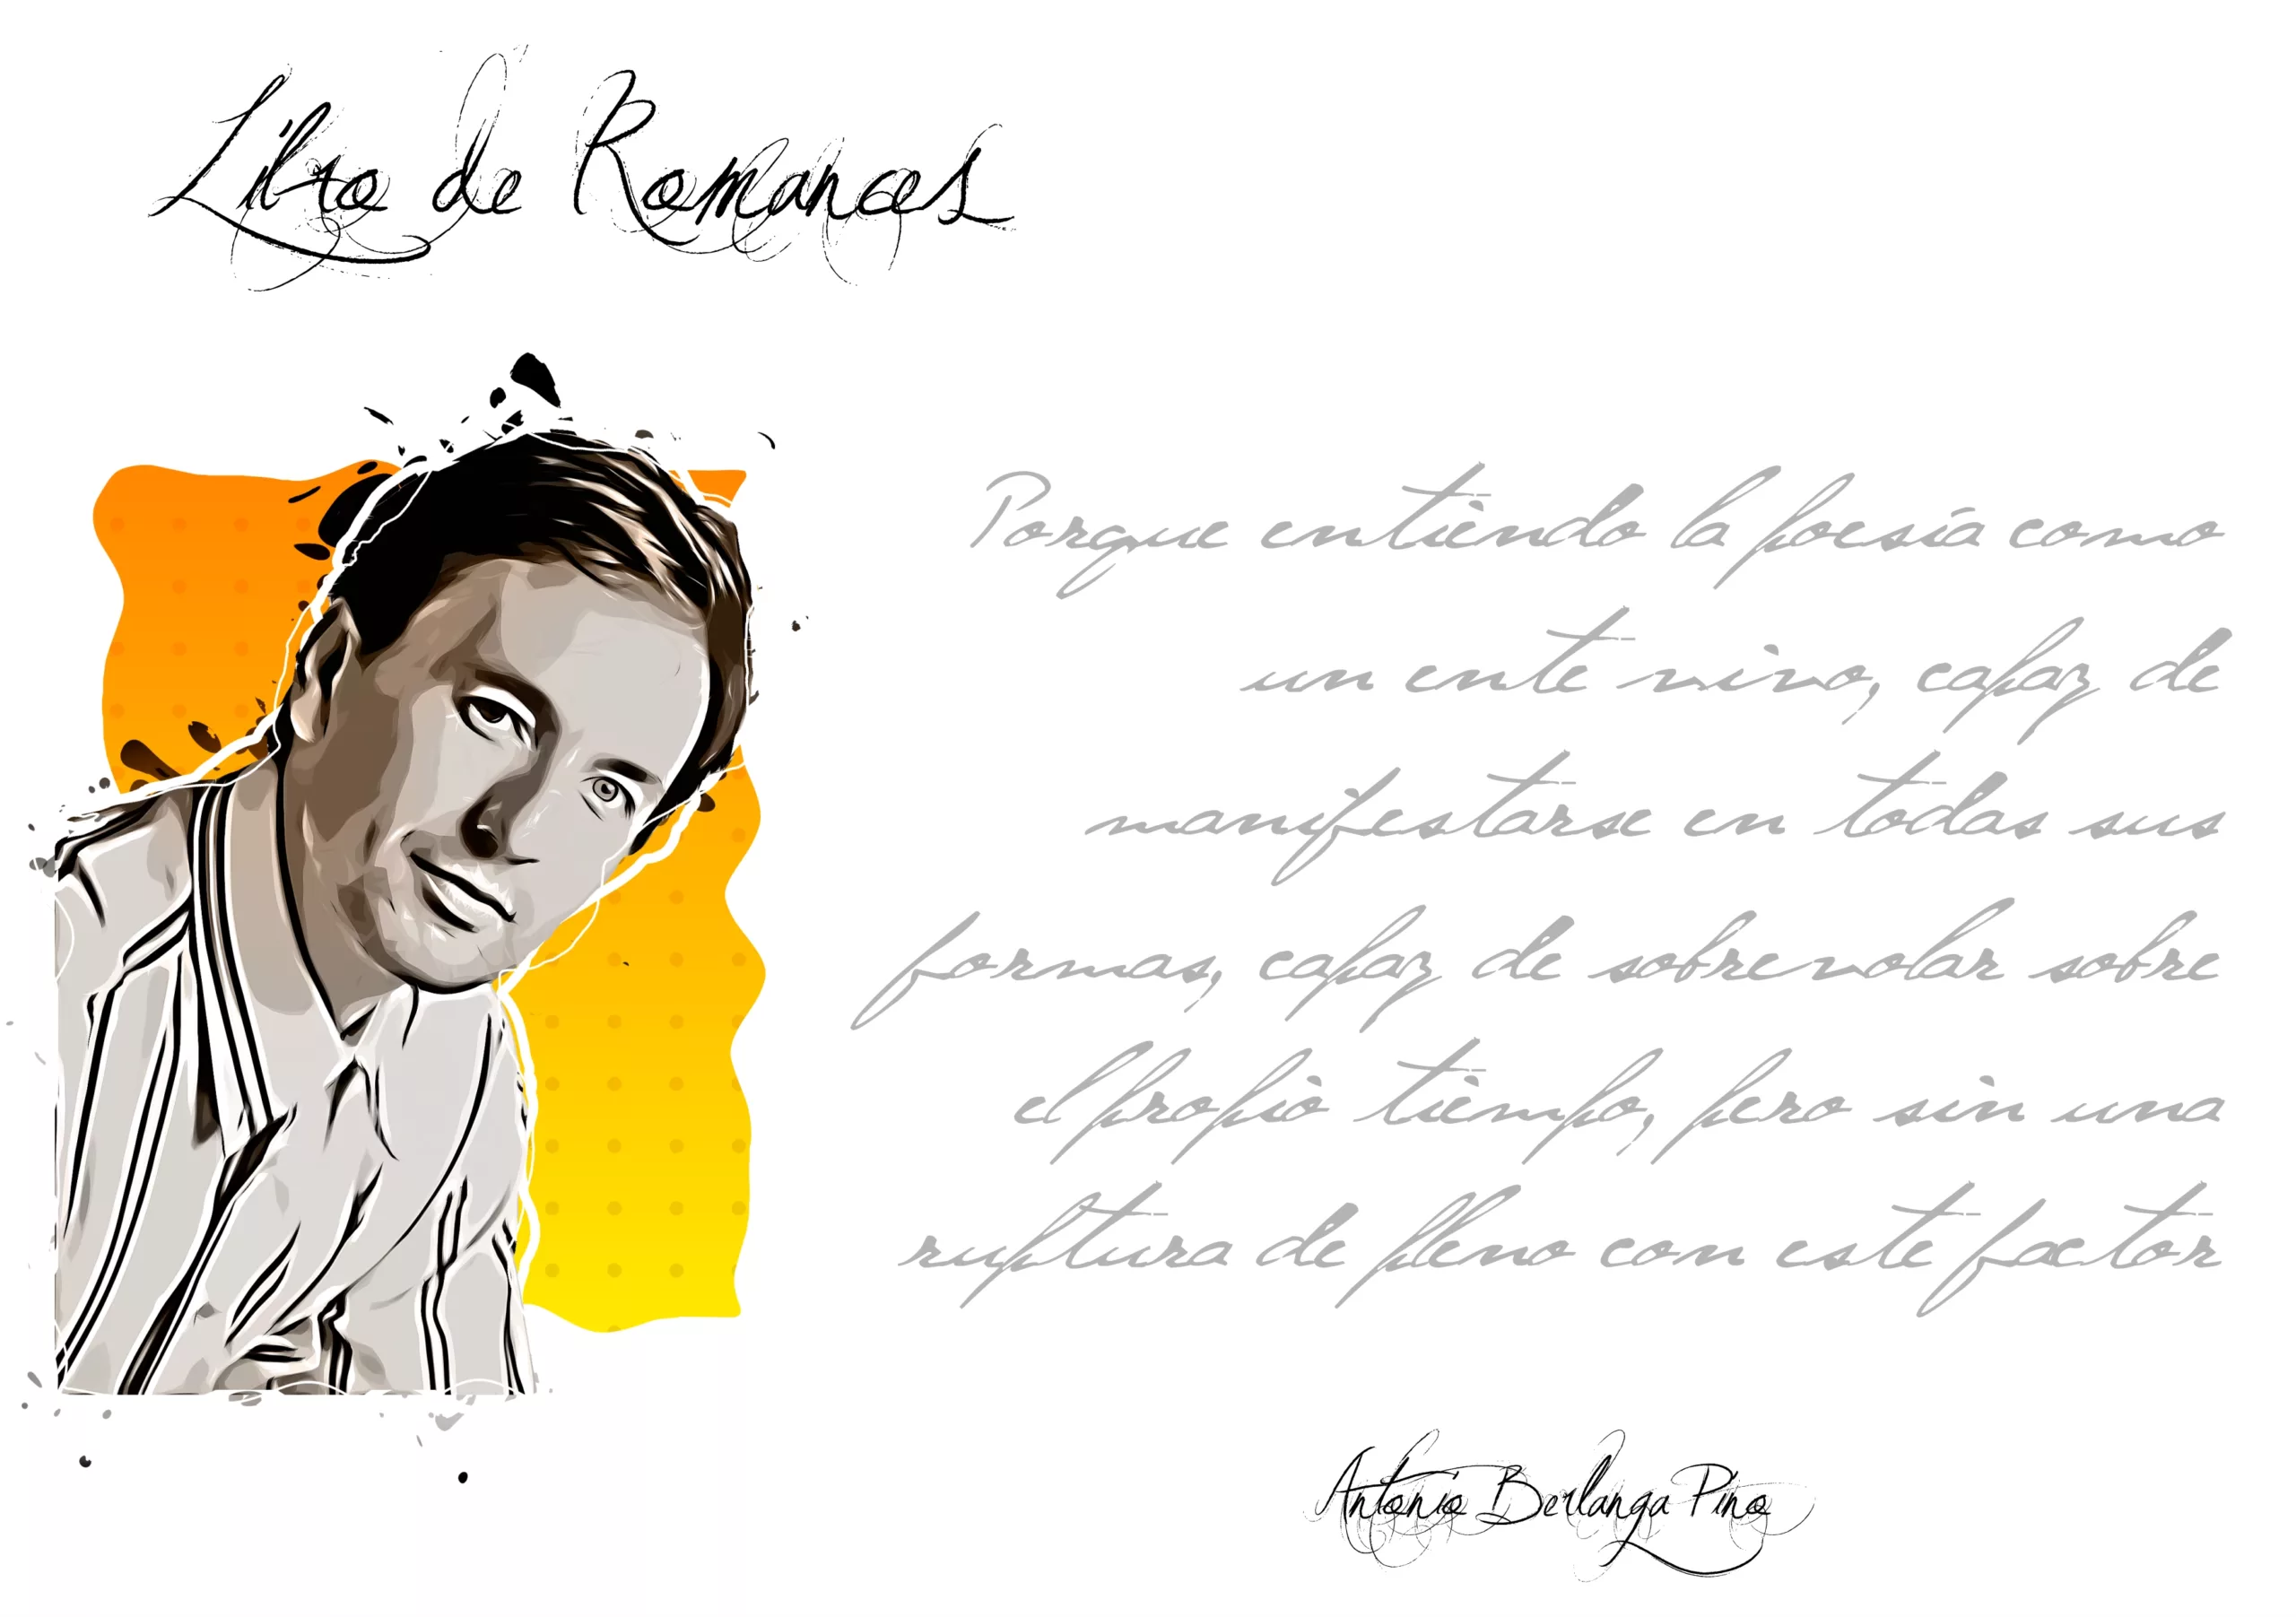 Libro de Romances
Porque entiendo la poesía como
un ente vivo, capaz de
manifestarse en todas sus
formas, capaz de sobrevolar sobre
el propio tiempo, pero sin una
ruptura de pleno con este factor
Antonio Berlanga Pino